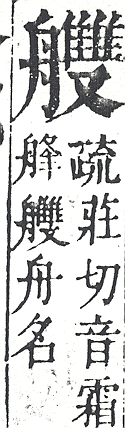 艭
疏莊切音霜
舽艭舟名